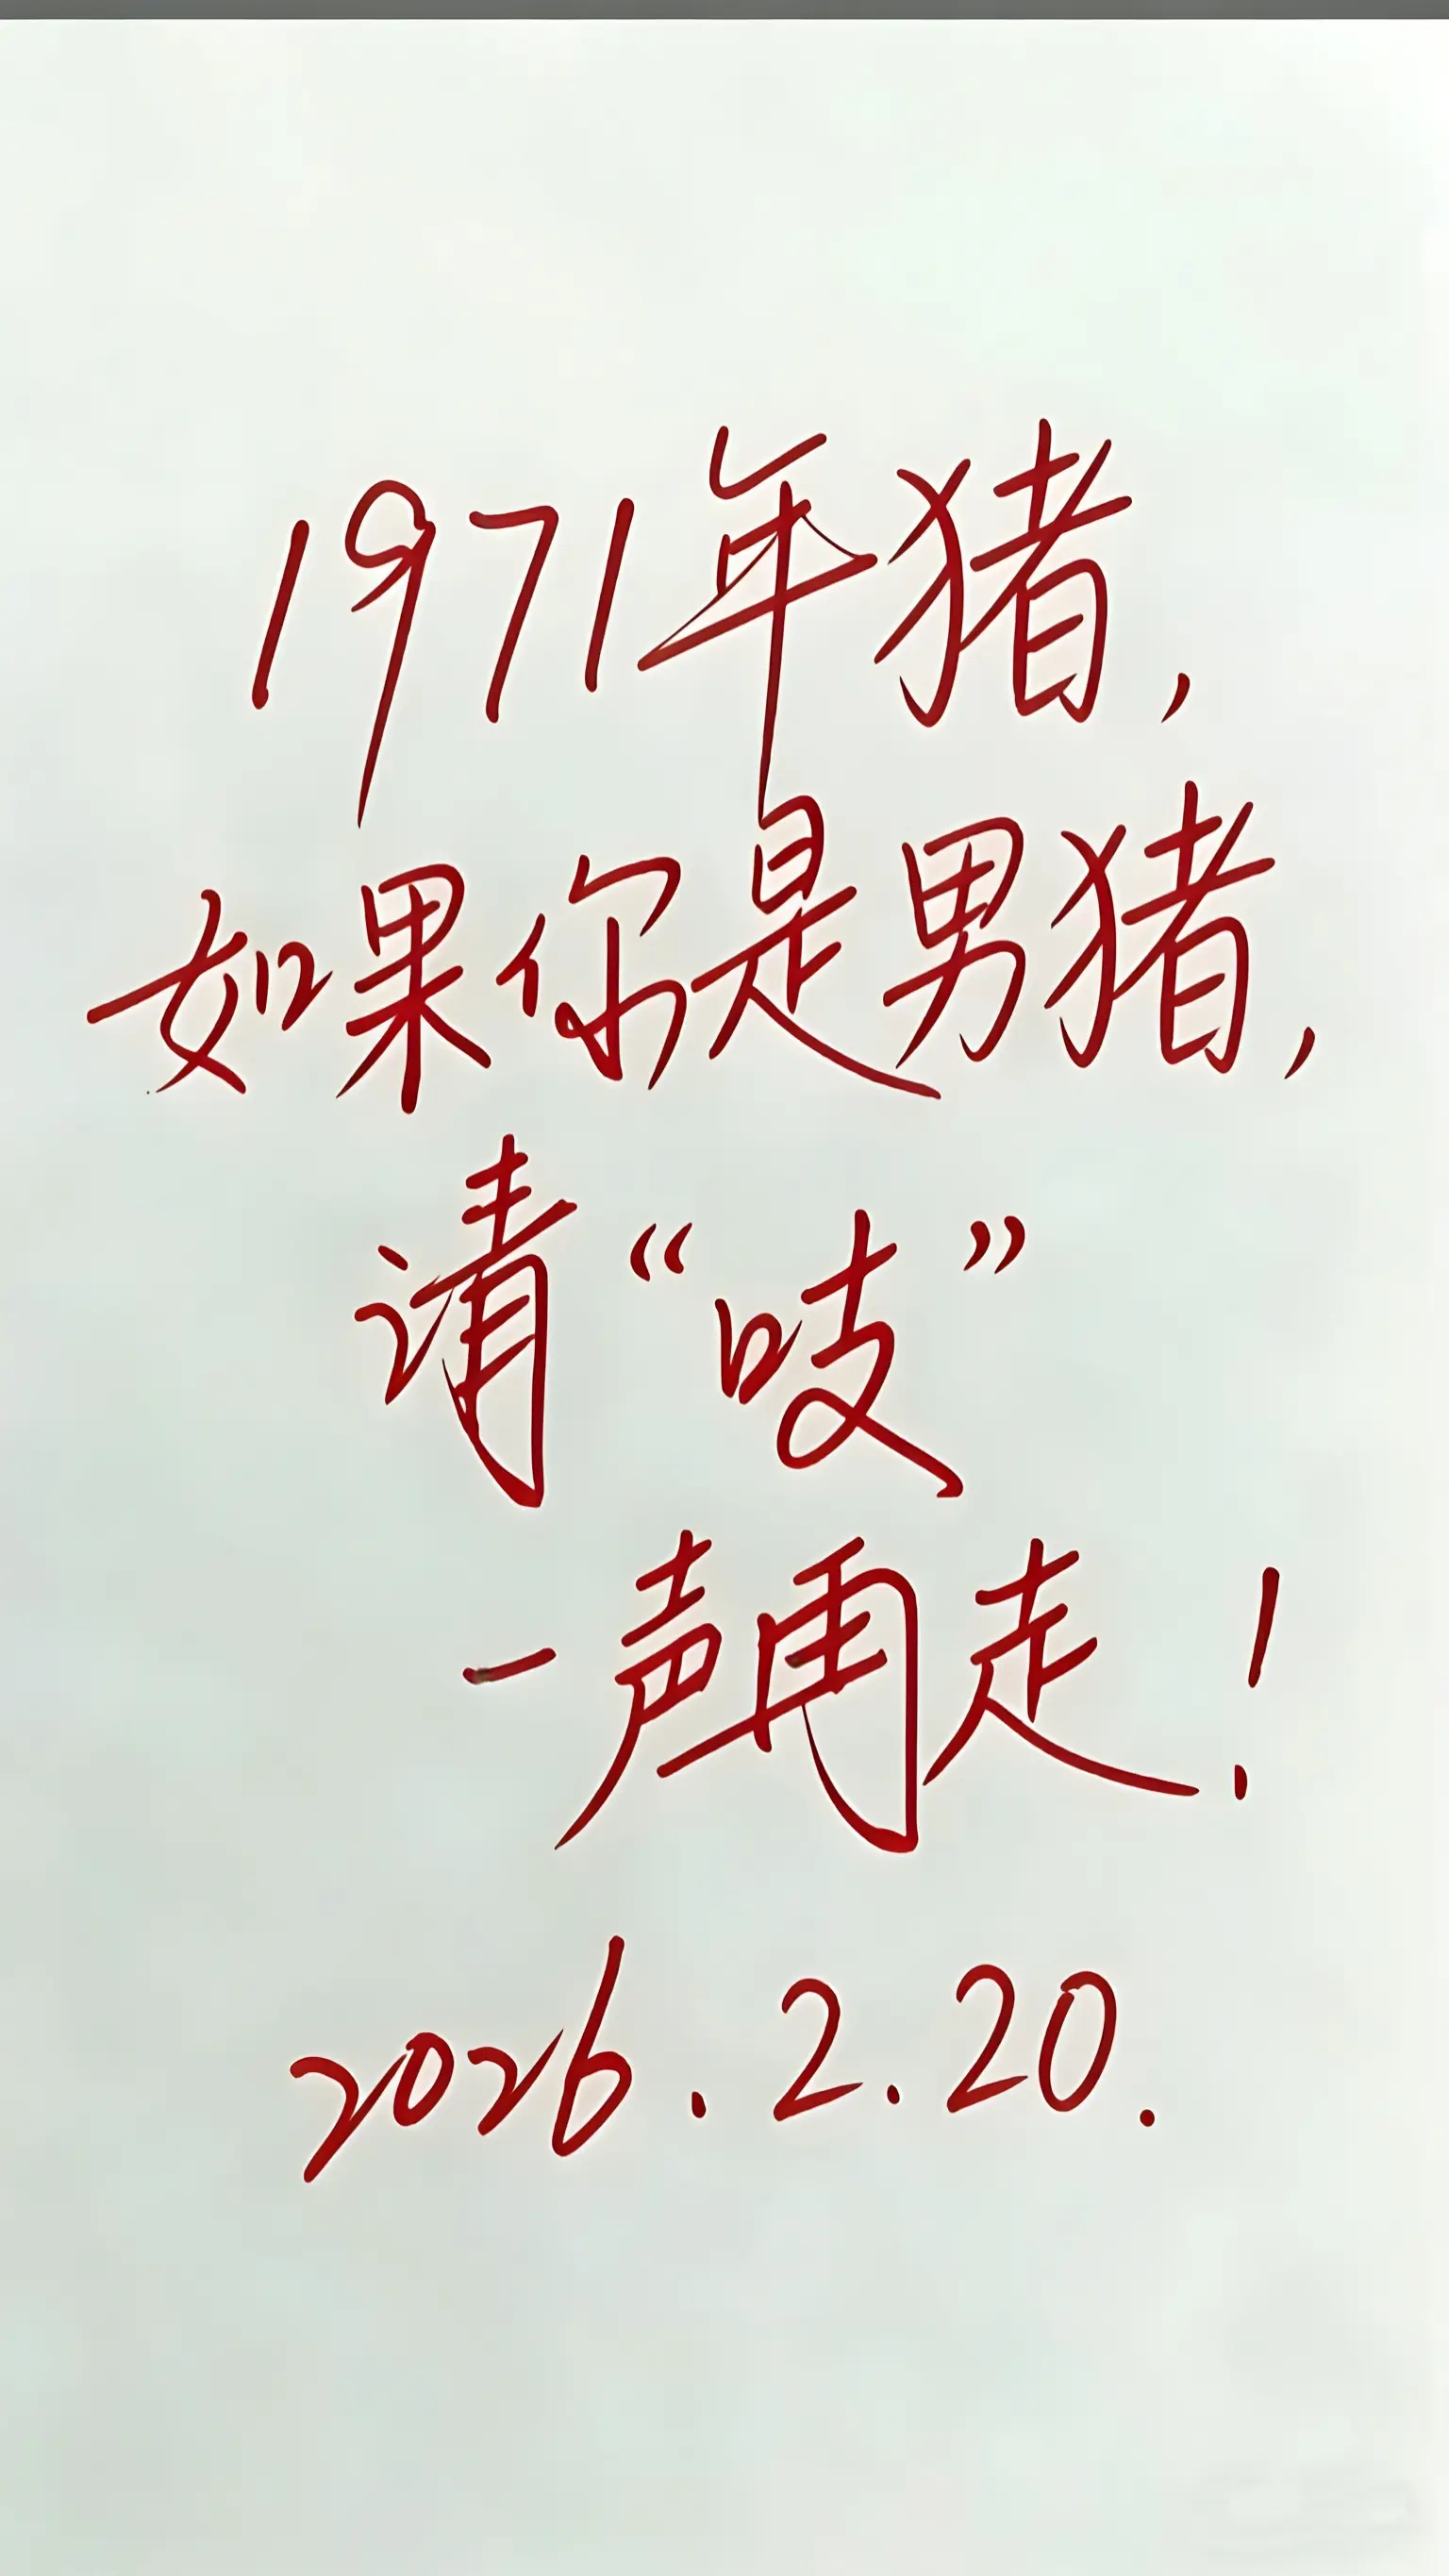 1971年猪,
如果你是男猪,
请“吱”
一声再走!
2026.2.20.